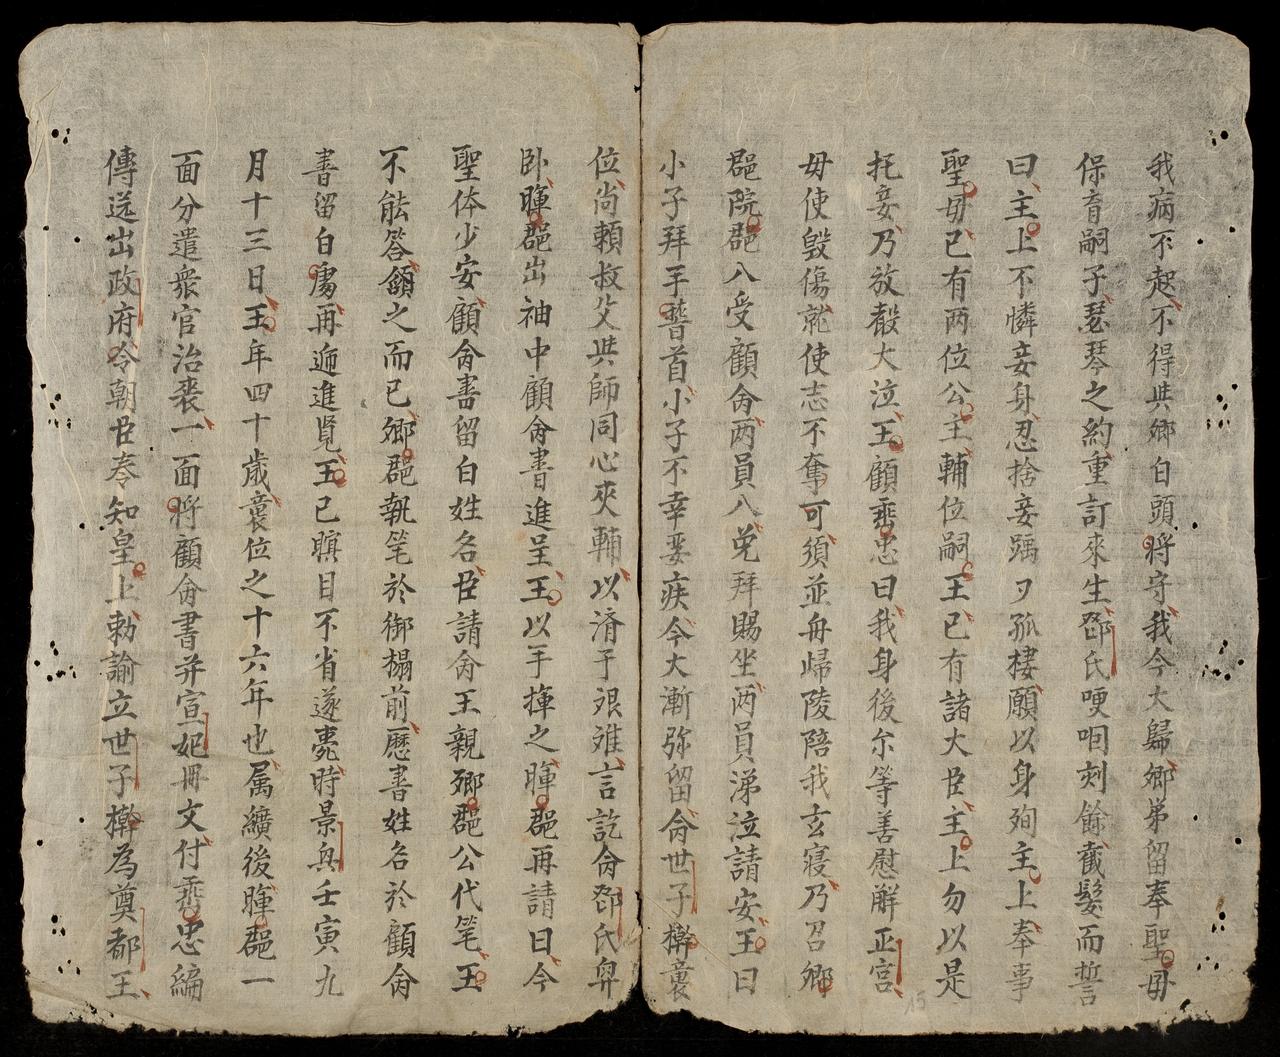 我病不起不得共鄉白頭將守我今大歸鄉弟留奉聖母
保育嗣子瑟琴之約重訂來生鄧氏哽咽刻餘截髮而誓
曰主上不憐妾身忍捨妾踽孤棲願以身殉主上奉事
聖母已有两位公主輔位嗣王已有諸大臣主上勿以是
托妾乃放聲大泣王顧乘忠曰我身後尔等善慰解正宮
毋使毀傷就使志不奪可須並舟歸陵陪我玄寢乃召鄉
郡院郡入受顧命两員入免拜賜坐两員涕泣請安王曰
小子拜手䭫首小子不幸嬰疾今大漸弥留命世子橊襄
位尚賴叔父共師同心夾輔以済于艱难言訖命鄧氏舁
卧暉郡出袖中顧命書進呈王以手揮之暉郡再請曰今
聖体少安顧命書留白姓名臣請命王親鄉郡公代笔王
不能答頷之而已鄉郡執笔於御榻前歷書姓名於顧命
書留白處再遍進覽王已瞑目不省遂薨時景興壬寅九
月十三日王年四十歲襄位之十六年也属纊後暉郡一
面分遣衆官治喪一面將顧命書并宣妃冊文付乘忠編
傳送出政府令朝臣奏知皇上勅諭立世子橊為奠都王